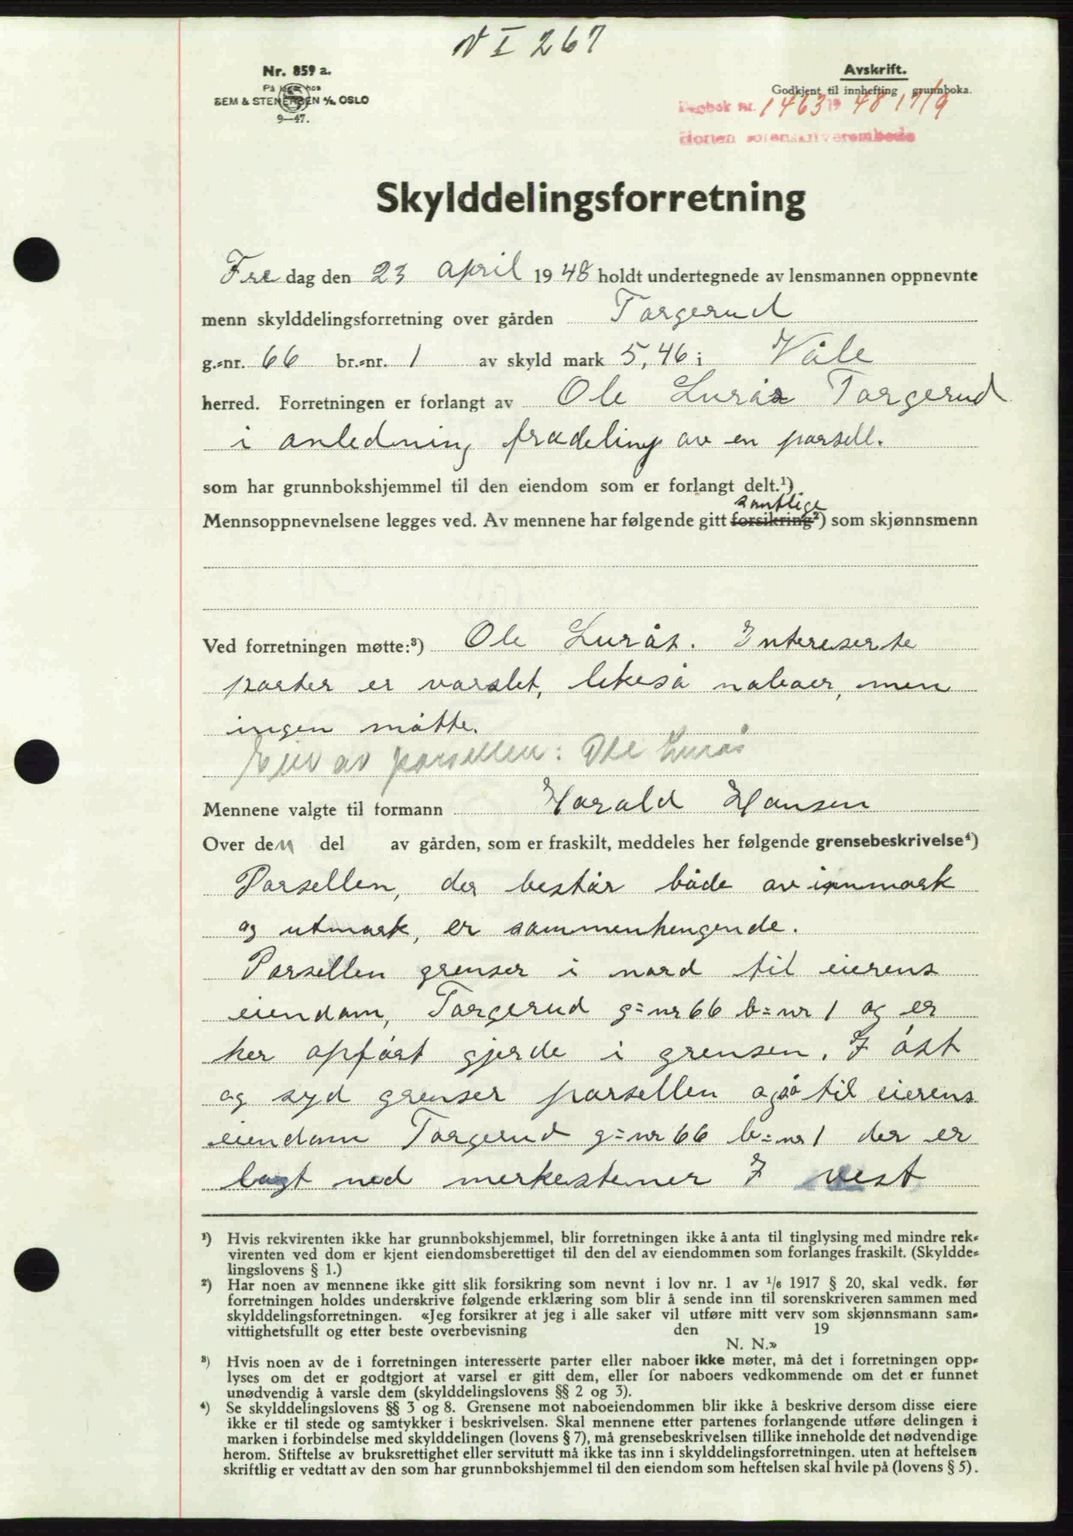 N I 267
Nr. 859 a.
På lager hos
SEM & STENERSEN A/S, OSLO
9—47.
Avskrift.
Godkjent til innhefting grunnboka.
Dagbok nr. 1463 19 48 17/9
Horten sorenskriverembede
Skylddelingsforretning
Fre dag den 23 april 1948 holdt undertegnede av lensmannen oppnevnte
menn skylddelingsforretning over gården Targerud
g.-nr. 66 br.-nr. 1 av skyld mark 5,46 i Våle
herred. Forretningen er forlangt av Ole Lurås Targerud
i anledning fradeling av en parsell.
som har grunnbokshjemmel til den eiendom som er forlangt delt.¹)
samtlige
Mennsoppnevnelsene legges ved. Av mennene har følgende gitt forsikring²) som skjønnsmenn
Ved forretningen møtte:³) Ole Lurås. Intereserte
parter er varslet, likeså naboer, men
ingen møtte.
Eier av parsellen: Ole Lurås
Mennene valgte til formann Harald Hansen
Over den del av gården, som er fraskilt, meddeles her følgende grensebeskrivelse⁴)
Parsellen, der består både av innmark
og utmark, er sammenhengende.
Parsellen grenser i nord til eierens
eiendom, Targerud g=nr 66 b=nr 1 og er
her opført gjerde i grensen. I øst
og syd grenser parsellen også til eierens
eiendom Targerud g=nr 66 b=nr 1 der er
lagt ned merkestener I vest
¹) Hvis rekvirenten ikke har grunnbokshjemmel, blir forretningen ikke å anta til tinglysing med mindre rek-
virenten ved dom er kjent eiendomsberettiget til den del av eiendommen som forlanges fraskilt. (Skyldde-
lingslovens § 1.)
²) Har noen av mennene ikke gitt slik forsikring som nevnt i lov nr. 1 av 1/6 1917 § 20, skal vedk. før
forretningen holdes underskrive følgende erklæring som blir å sende inn til sorenskriveren sammen med
skylddelingsforretningen. «Jeg forsikrer at jeg i alle saker vil utføre mitt verv som skjønnsmann sam-
vittighetsfullt og etter beste overbevisning den 19
N. N.»
³) Hvis noen av de i forretningen interesserte parter eller naboer ikke møter, må det i forretningen opp-
lyses om det er godtgjort at varsel er gitt dem, eller for naboers vedkommende om det er funnet
unødvendig å varsle dem (skylddelingslovens §§ 2 og 3).
⁴) Se skylddelingslovens §§ 3 og 8. Grensene mot naboeiendommen blir ikke å beskrive dersom disse eiere
ikke er til stede og samtykker i beskrivelsen. Skal mennene etter partenes forlangende utføre delingen i
marken i forbindelse med skylddelingen (lovens § 7), må grensebeskrivelsen tillike inneholde det nødvendige
herom. Stiftelse av bruksrettighet eller servitutt må ikke tas inn i skylddelingsforretningen. uten at heftelsen
skriftlig er vedtatt av den som har grunnbokshjemmel til den eiendom som heftelsen skal hvile på (lovens § 5).